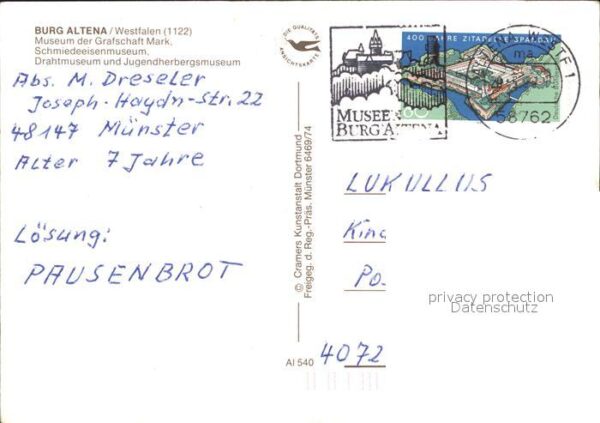 BURG ALTENA / Westfalen (1122)
Museum der Grafschaft Mark,
Schmiedeeisenmuseum,
Drahtmuseum und Jugendherbergsmuseum
Abs. M. Dreseler
Joseph-Haydn-Str. 22
48147 Münster
Alter 7 Jahre
Lösung:
PAUSENBROT
DIE QUALITÄTS
ANSICHTSKARTE
© Cramers Kunstanstalt Dortmund
Freigeg. d. Reg.-Präs. Münster 6469/74
AI 540
MUSEEN
BURG ALTENA
400 JAHRE ZITADELLE SPANDAU
60
58762
LUKULLUS
Kin
Po.
4072
privacy protection
Datenschutz